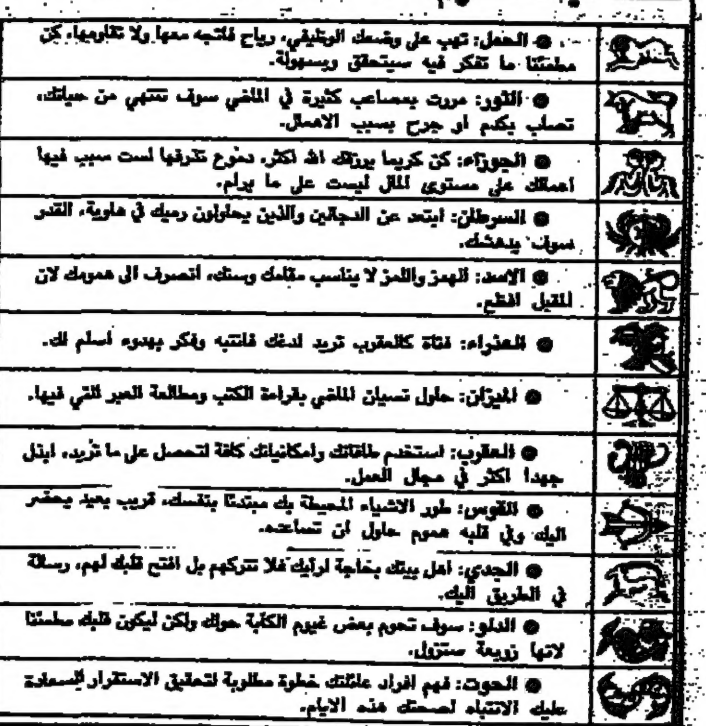 ● الحمل: تهب على وضعك الوظيفي، رياح فاتجه معها ولا تقاومها، كن
مطمئنا ما تفكر فيه سيتحقق وبسهولة.
● الثور: مررت بمصاعب كثيرة في الماضي سوف تنتهي من حياتك،
تصاب بكدم او جرح بسبب الاهمال.
● الجوزاء: كن كريما يرزقك الله اكثر، دموع تذرفها لست سبب فيها
اعمالك على مستوى المال ليست على ما يرام.
● السرطان: ابتعد عن الدجالين والذين يحاولون رميك في هاوية، القدر
سوف يدهشك.
● الاسد: الهمز واللمز لا يناسب مقامك وسنك، انصرف الى همومك لان
المقبل افظع.
● العذراء: فتاة كالعقرب تريد لدغك فانتبه وفكر بهدوء اسلم لك.
● الميزان: حاول نسيان الماضي بقراءة الكتب ومطالعة العبر التي فيها.
● العقرب: استخدم طاقاتك وامكانياتك كافة لتحصل على ما تريد، ابذل
جهدا اكثر في مجال العمل.
● القوس: طور الاشياء المحيطة بك مبتدئا بنفسك، قريب بعيد يحضر
اليك وفي قلبه هموم حاول ان تساعده.
● الجدي: اهل بيتك بحاجة لرأيك فلا تتركهم بل افتح قلبك لهم، رسالة
في الطريق اليك.
● الدلو: سوف تحوم بعض غيوم الكآبة حولك ولكن ليكون قلبك مطمئنا
لانها زوبعة ستزول.
● الحوت: فهم افراد عائلتك خطوة مطلوبة لتحقيق الاستقرار للسعادة
عليك الانتباه لصحتك هذه الايام.